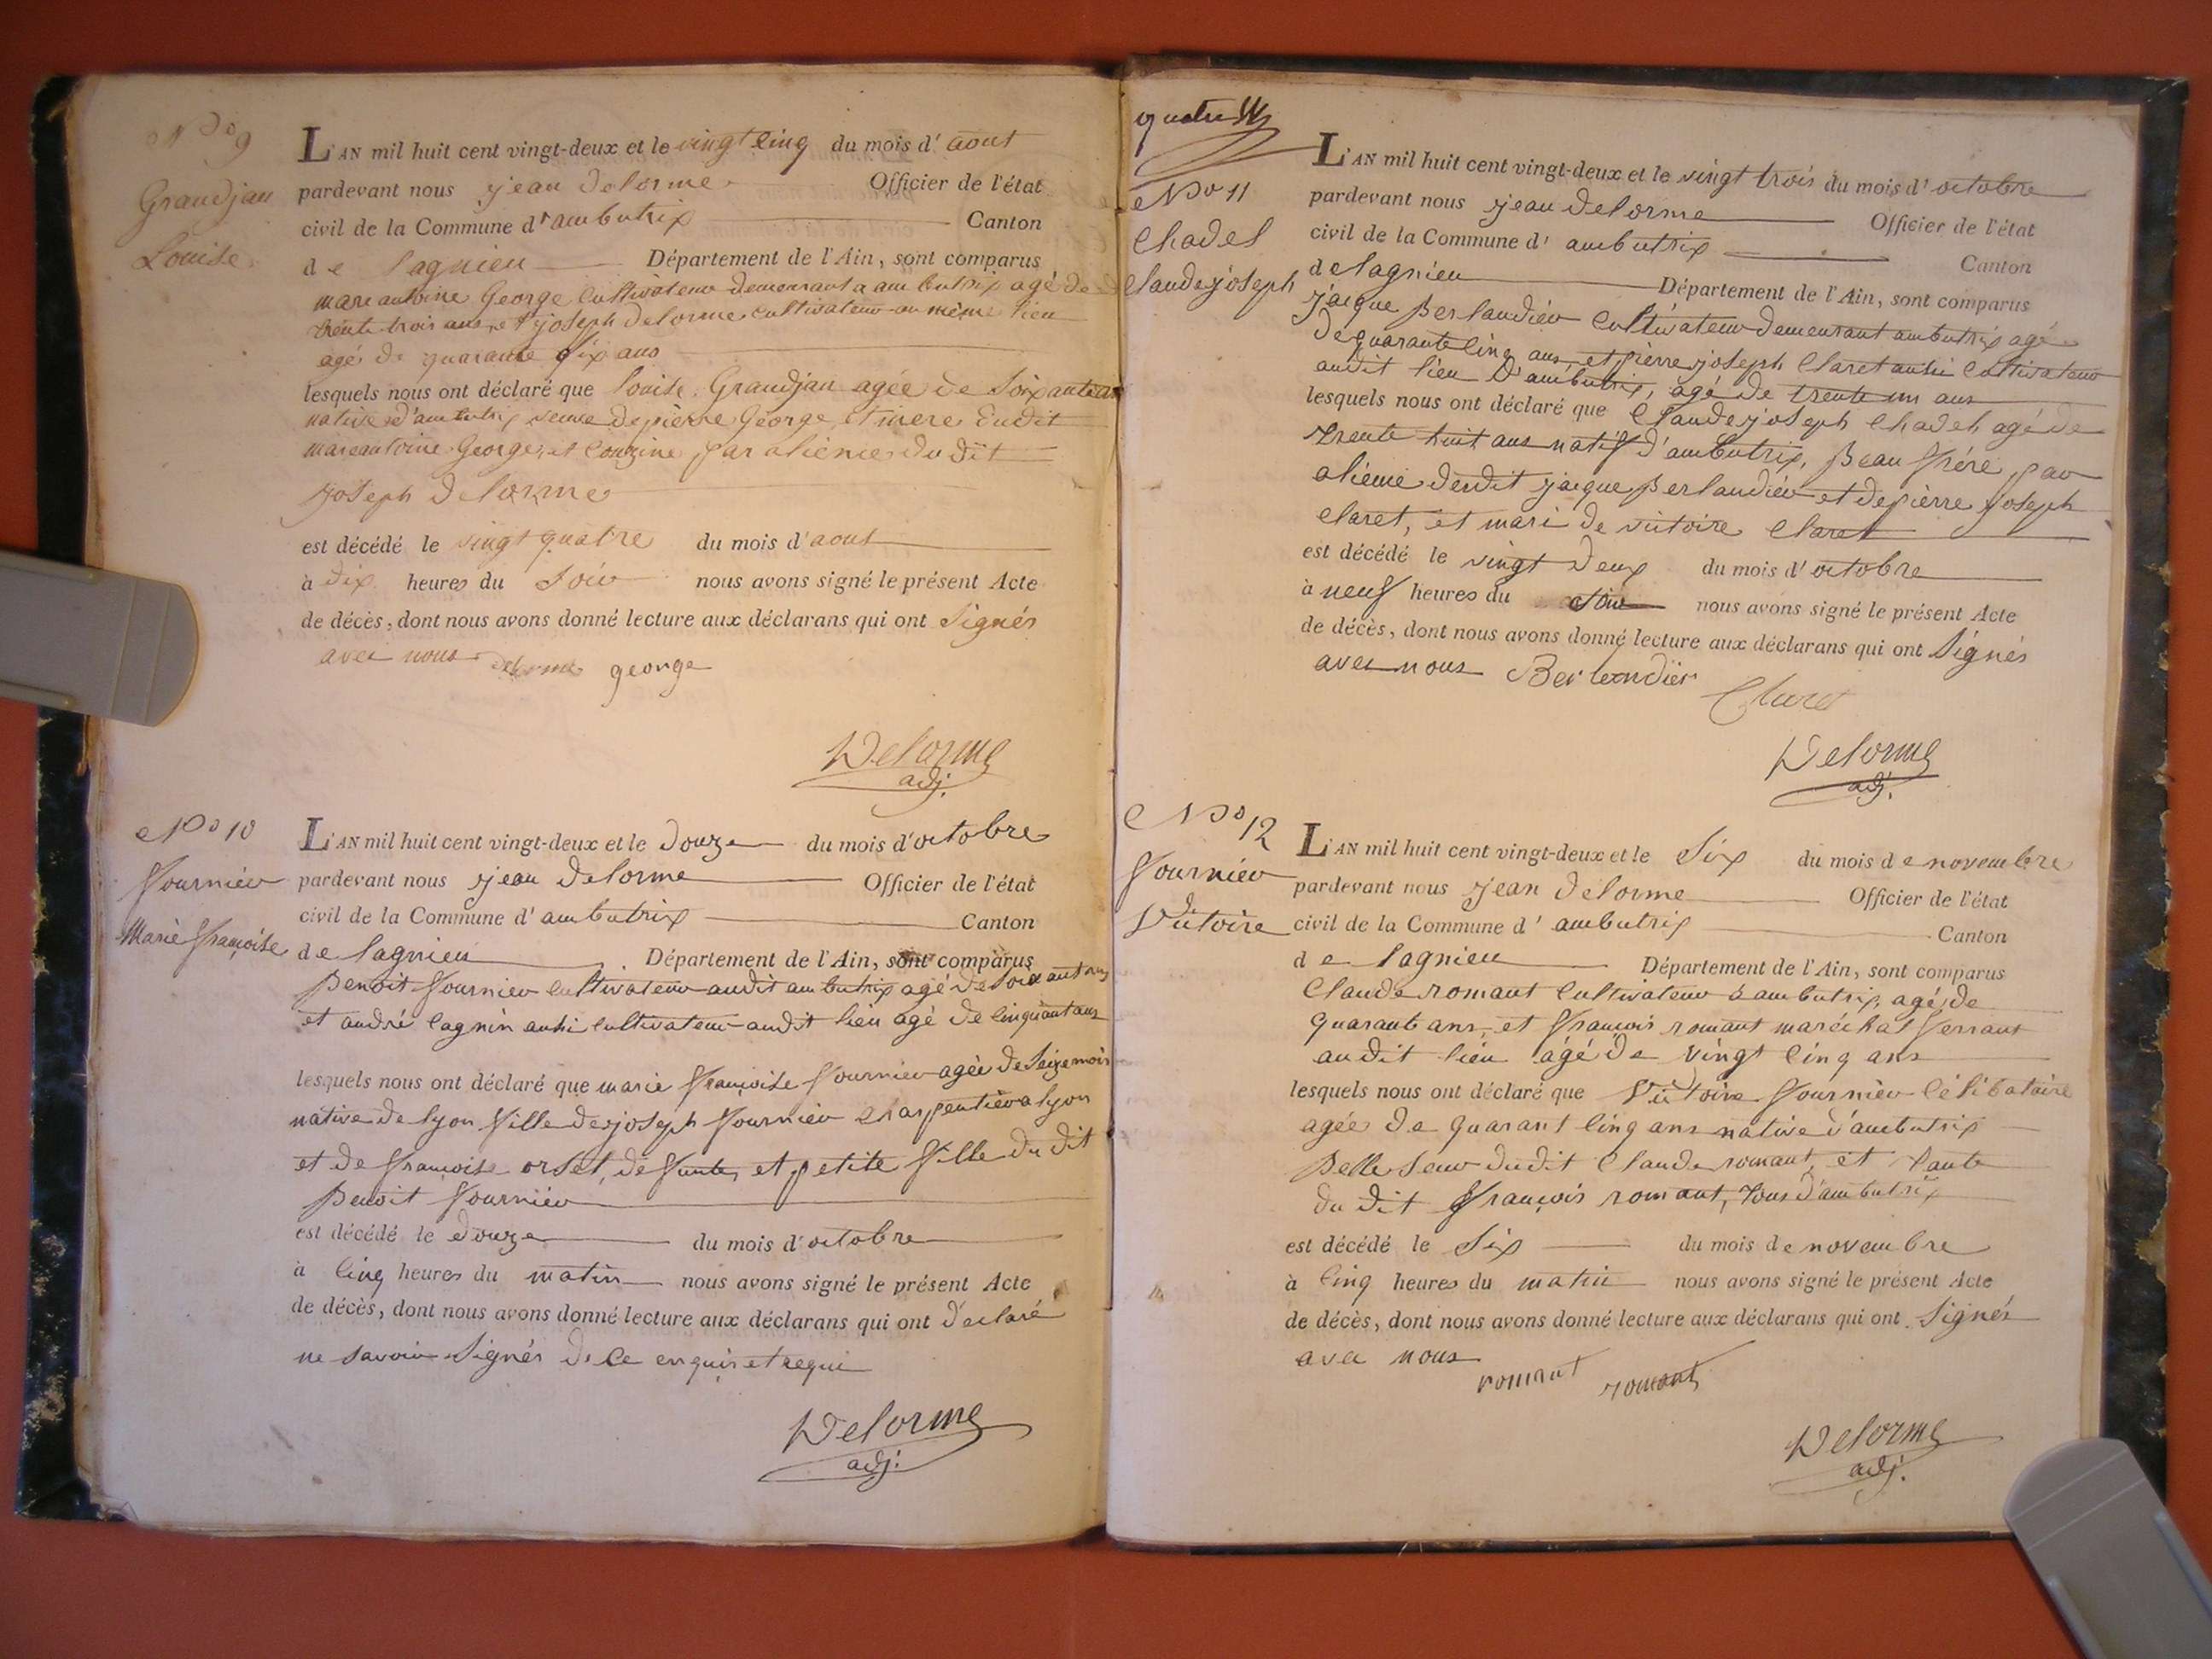 No 9
Grandjan
Louise
L'AN mil huit cent vingt-deux et le vingt cinq du mois d'aout
pardevant nous jean Delorme Officier de l'état
civil de la Commune d'ambutrix Canton
de lagnieu Département de l'Ain, sont comparus
marc antoine George cultivateur demeurant a ambutrix agé de
trente trois ans, et joseph delorme cultivateur au même lieu
agé de quarante six ans
lesquels nous ont déclaré que louise Grandjan agée de soixante ans
native d'ambutrix veuve de pierre George, et mere dudit
marcantoine George, et couzine par alience du dit
joseph delorme
est décédé le vingt quatre du mois d'aout
à dix heures du soir nous avons signé le présent Acte
de décès, dont nous avons donné lecture aux déclarans qui ont signés
avec nous delorme george
Delorme
adj.
No 10
fournier
Marie françoise
L'AN mil huit cent vingt-deux et le douze du mois d'octobre
pardevant nous jean delorme Officier de l'état
civil de la Commune d'ambutrix Canton
de lagnieu Département de l'Ain, sont comparus
Benoit fournier cultivateur audit ambutrix agé de soixant ans
et andré cagnin aussi cultivateur audit lieu agé de cinquant ans
lesquels nous ont déclaré que marie françoise fournier agée de seize mois
native de lyon fille de joseph fournier charpentier a lyon
et de françoise orset, defunte, et petite fille du dit
Benoit fournier
est décédé le douze du mois d'octobre
à cinq heures du matin nous avons signé le présent Acte
de décès, dont nous avons donné lecture aux déclarans qui ont déclaré
ne savoir signér de ce enquis et requi
Delorme
adj.
quatre
No 11
Chadel
Claude joseph
L'AN mil huit cent vingt-deux et le vingt trois du mois d'octobre
pardevant nous jean delorme Officier de l'état
civil de la Commune d'ambutrix Canton
de lagnieu Département de l'Ain, sont comparus
jacque Berlandier cultivateur demeurant ambutrix agé
de quarante cinq ans, et pierre joseph Claret aussi cultivateur
audit lieu d'ambutrix, agé de trente un ans
lesquels nous ont déclaré que Claude joseph Chadel agé de
trente huit ans natif d'ambutrix, Beau frére par
alience dudit jacque Berlandier et de pierre joseph
Claret, et mari de victoire Claret
est décédé le vingt deux du mois d'octobre
à neuf heures du soir nous avons signé le présent Acte
de décès, dont nous avons donné lecture aux déclarans qui ont signés
avec nous Berlandier
Claret
Delorme
adj.
No 12
fournier
Victoire
L'AN mil huit cent vingt-deux et le six du mois de novembre
pardevant nous jean delorme Officier de l'état
civil de la Commune d'ambutrix Canton
de lagnieu Département de l'Ain, sont comparus
Claude romant cultivateur a ambutrix, agé de
quarant ans, et françois romant maréchal ferrant
audit lieu agé de vingt cinq ans
lesquels nous ont déclaré que Victoire fournier célibataire
agée de quarant cinq ans native d'ambutrix
Belle seur dudit Claude romant, et tante
du dit françois romant, tous d'ambutrix
est décédé le six du mois de novembre
à cinq heures du matin nous avons signé le présent Acte
de décès, dont nous avons donné lecture aux déclarans qui ont signés
avec nous
romant romant
Delorme
adj.